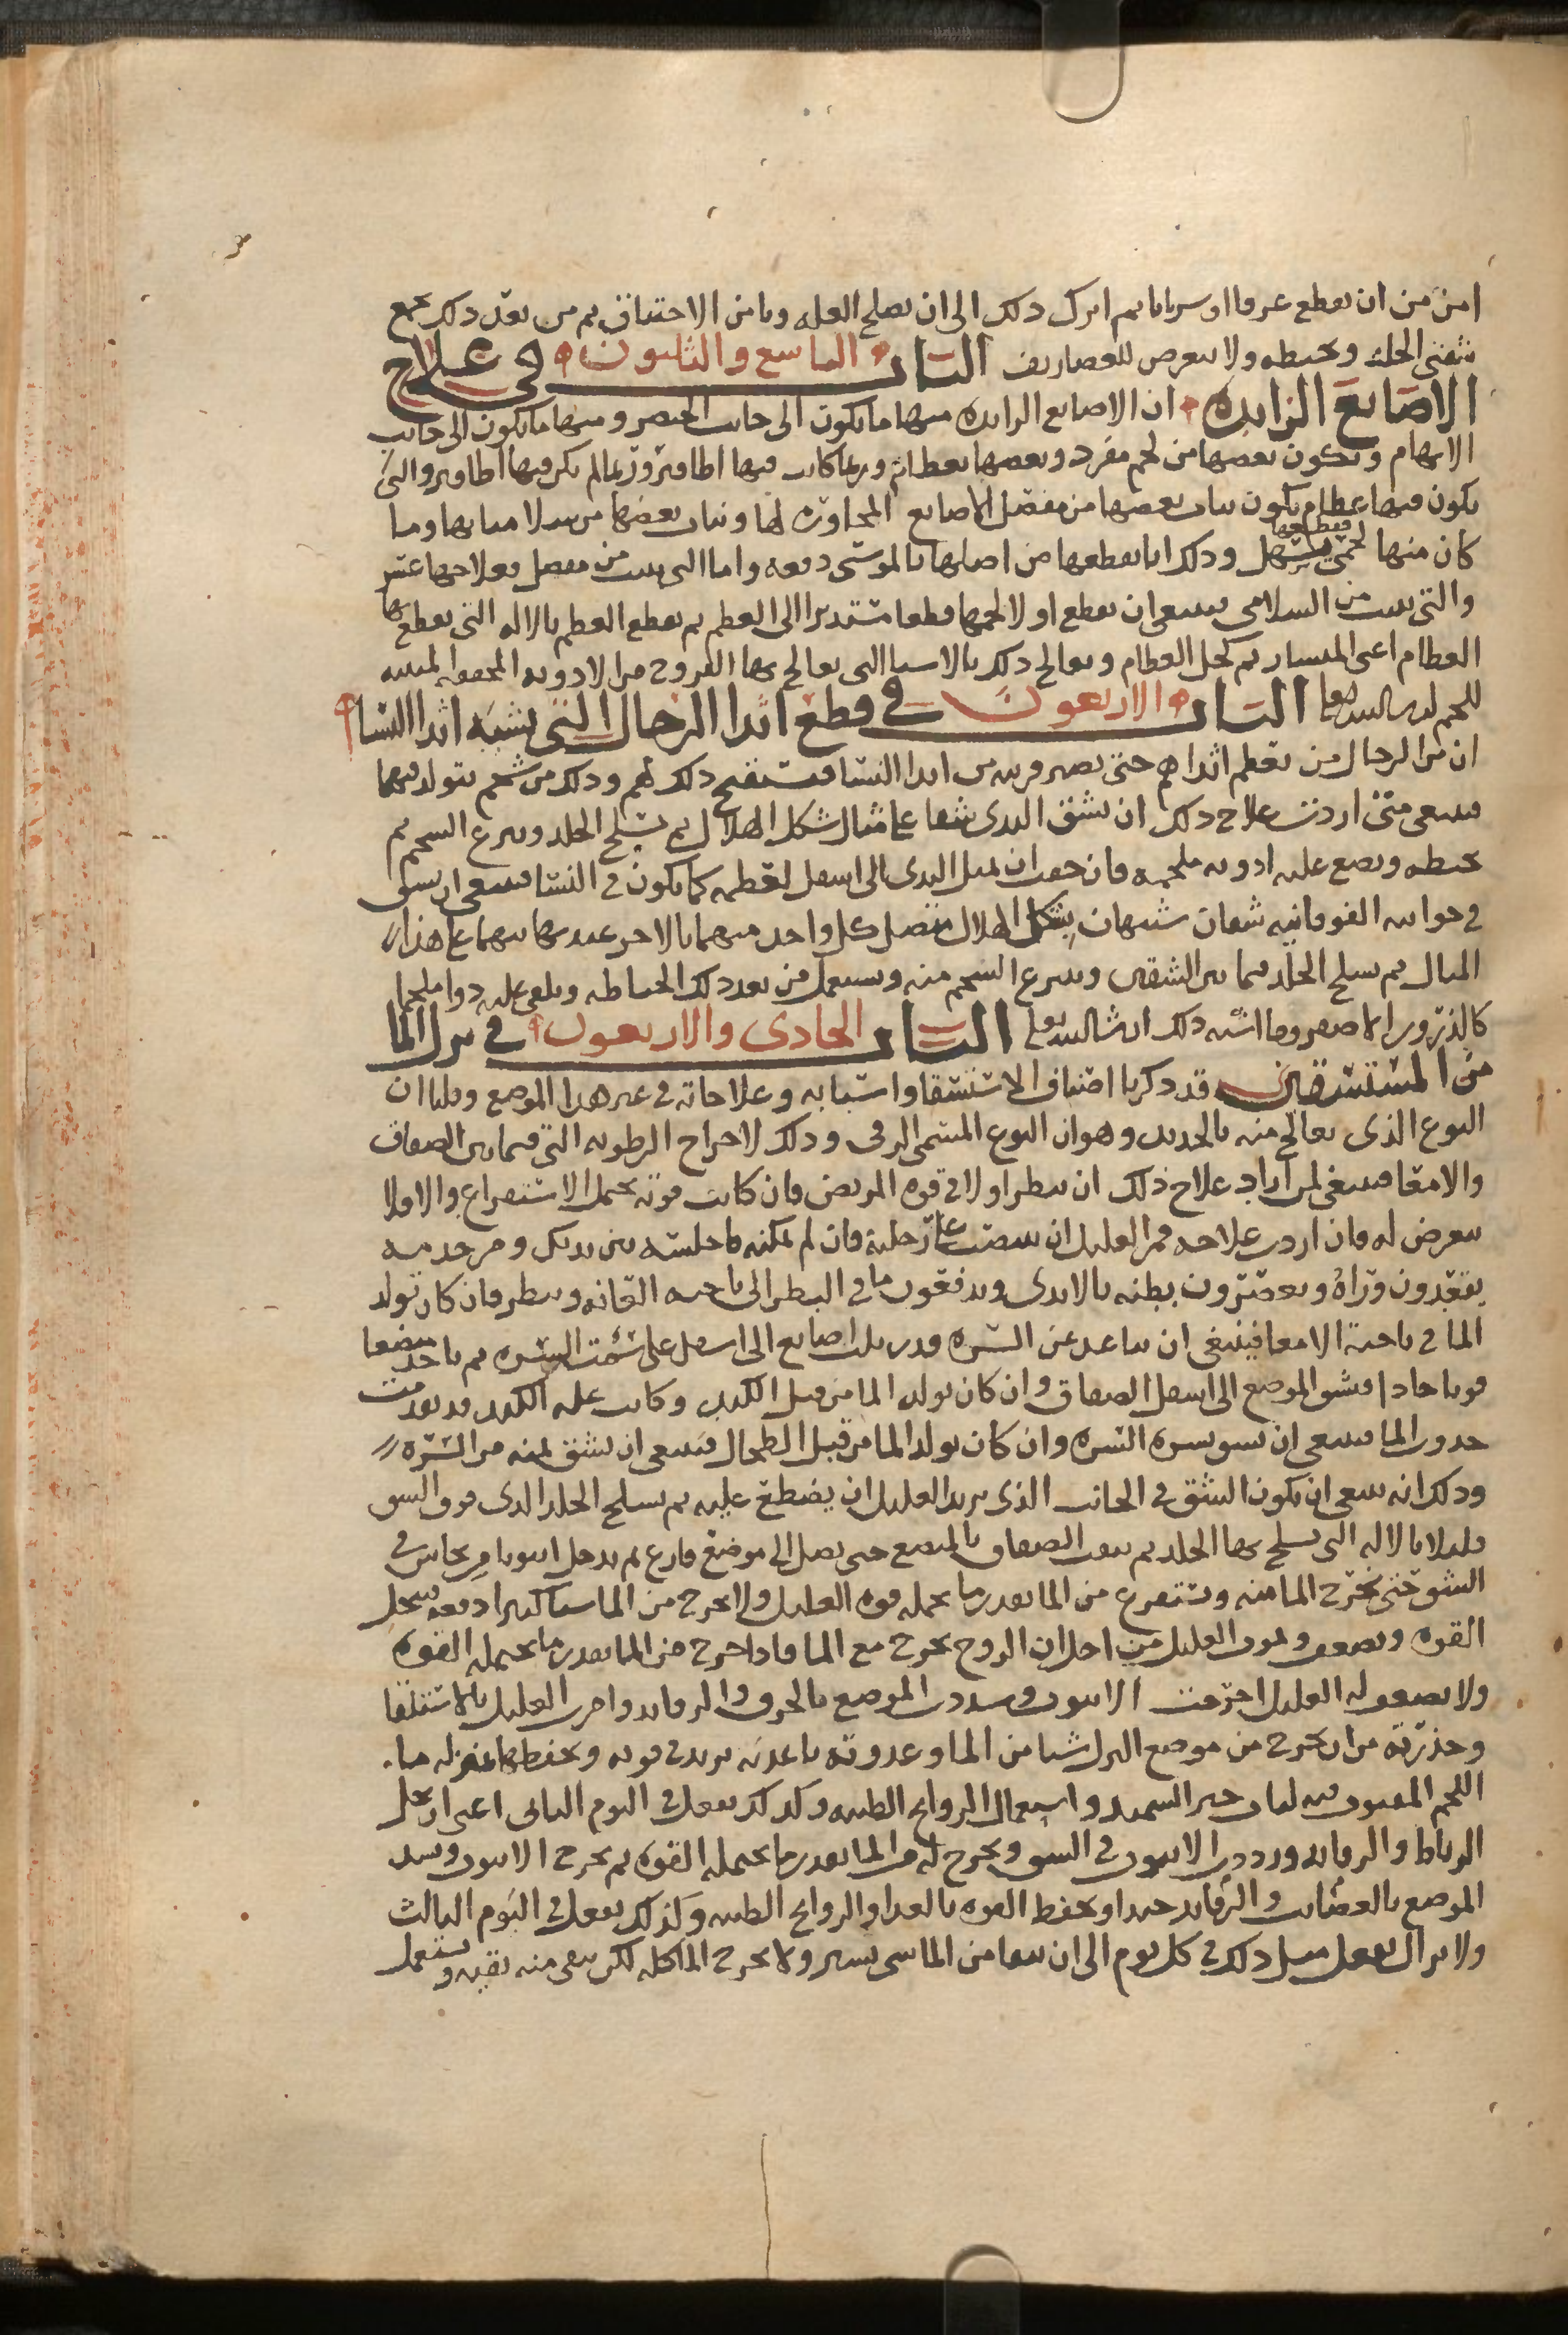 امن من ان يقطع عرقا او سريانا ثم اترك ذلك الى ان يصلح العله ويامن الاختناق ثم من بعد ذلك تجمع
شفتى الجلد وتخيطه ولا تتعرض للغضاريف الباب التاسع والثلثون في علاج
الاصابع الزايده ان الاصابع الزايده منها ما يكون الى جانب الخنصر ومنها ما يكون الى جانب
الابهام ويكون بعضها من لحم مفرد وبعضها بعظام وربما كانت فيها اظافير وربما لم يكن فيها اظافير والتى
يكون فيها عظام يكون نبات بعضها من مفصل الاصابع المجاورة لها ونبات بعضها من سلامياتها وما
كان منها لحمى فقطعها سهل وذلك انا نقطعها من اصلها بالموسى دفعه واما التى نبتت من مفصل فعلاجها عسر
والتى نبتت من السلامى فينبغى ان تقطع اولا لحمها قطعا مستديرا الى العظم ثم تقطع العظم بالاله التى تقطع بها
العظام اعنى المنشار ثم تحك العظام وتعالج ذلك بالاشيا التى تعالج بها القروح من الادويه المجففه المنبته
للحم ان شا الله تعالى الباب الاربعون في قطع اثدا الرجال التى تشبه اثدا النسا
ان من الرجال من تعظم اثداهم حتى تصير قريبه من اثدا النسا فيستقبح ذلك لهم وذلك من شحم يتولد فيها
فينبغى متى اردت علاج ذلك ان تشق الثدى شقا على مثال شكل الهلال ثم تسلخ الجلد وتنزع الشحم ثم
تخيطه وتضع عليه ادويه ملحمه فان خفت ان يميل الثدى الى اسفل لعظمه كما يكون في النسا فينبغى ان تشق
في جوانبه الفوقانيه شقان شبيهان بشكل الهلال متصل كل واحد منهما بالاخر عند نهايتهما على هذا
المثال ثم تسلخ الجلد فيما بين الشقين وتنزع الشحم منه وتستعمل من بعد ذلك الخياطه وتلقى عليه دوا ملحما
كالذرور الاصفر وما اشبه ذلك ان شا الله تعالى الباب الحادى والاربعون في بزل الما
من المستسقين قد ذكرنا اصناف الاستسقا واسبابه وعلاجاته في غير هذا الموضع وقلنا ان
النوع الذى يعالج منه بالحديد وهو ان النوع المسمى الزقى وذلك لاخراج الرطوبه التى فيما بين الصفاق
والامعا فينبغى لمن اراد علاج ذلك ان ينظر اولا في قوه المريض فان كانت قوته تحتمل الاستفراغ والا فلا
تتعرض له فان اردت علاجه فمر العليل ان ينتصب على رجليه فان لم يمكنه فاجلسه بين يديك ومر خدمه
يقعدون وراه ويعصرون بطنه بالايدى ويدفعون ما في البطن الى ناحيه العانه وينظر فان كان تولد
الما في ناحية الامعا فينبغى ان تتباعد عن السره قدر ثلث اصابع الى اسفل على سمت السره ثم تاخذ مبضعا
قويا حادا فتشق الموضع الى اسفل الصفاق وان كان تولد الما من قبل الكبد وكانت عله الكبد قد تقدمت
حدوث الما فينبغى ان تشق يسره السره وان كان تولد الما من قبل الطحال فينبغى ان تشق يمنه من السره
وذلك انه ينبغى ان يكون الشق في الجانب الذى يريد العليل ان يضطجع عليه ثم تسلخ الجلد الذى فوق الشق
قليلا بالاله التى يسلخ بها الجلد ثم تثقب الصفاق بالمبضع حتى يصل الى موضع فارغ ثم تدخل انبوبا من نحاس في
الشق حتى يخرج الما منه وتستفرغ من الما بقدر ما تحمله قوه العليل ولا تخرج من الما شيا كثيرا دفعه فتنحل
القوه وتضعف ويموت العليل من اجل ان الروح تخرج مع الما فاذا خرج من الما بقدر ما تحتمله القوه
ولا يضعف له العليل اخرجت الانبوب وسددت الموضع بالخرق والرفايد وامرت العليل بالاستلقا
وحذرته من ان يخرج من موضع البزل شيا من الما وغدوته باغذيه تزيد في قوته وتحفظها بمنزله ما
اللحم المفتوت فيه لباب خبز السميد واستعمال الروايح الطيبه وكذلك تفعل في اليوم الثانى اعنى ان تحل
الرباط والرفايد ورددت الانبوب في الشق وتخرج له من الما بقدر ما تحتمله القوه ثم تخرج الانبوب وتشد
الموضع بالعصايب والرفايد جيدا وتحفظ القوه بالغدا والروايح الطيبه وكذلك تفعل في اليوم الثالث
ولا تزال تفعل مثل ذلك في كل يوم الى ان يبقا من الما شى يسير ولا تخرج الما كله لكن تبقى منه بقيه وتستعمل